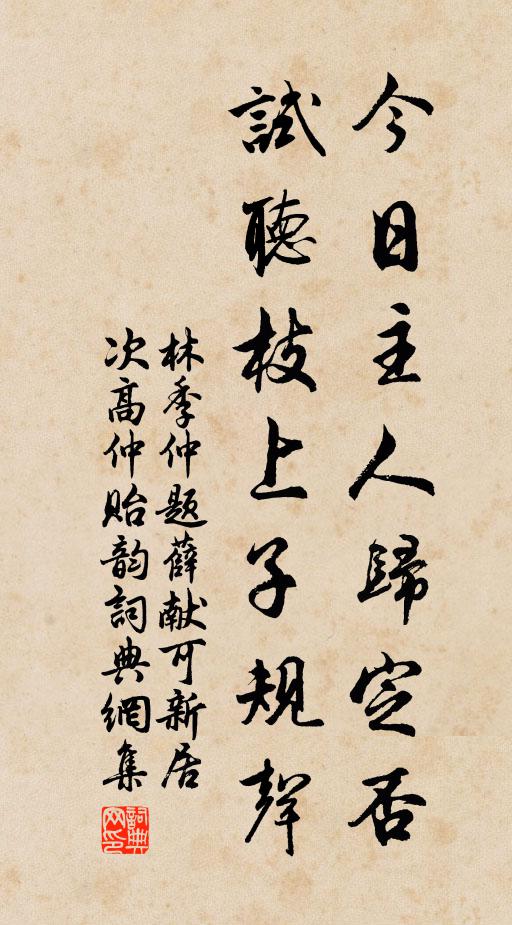 今日主人歸定否
試聽枝上子規聲
林季仲題薛献可新居
次高仲貽韵詞典網集
詞典网印